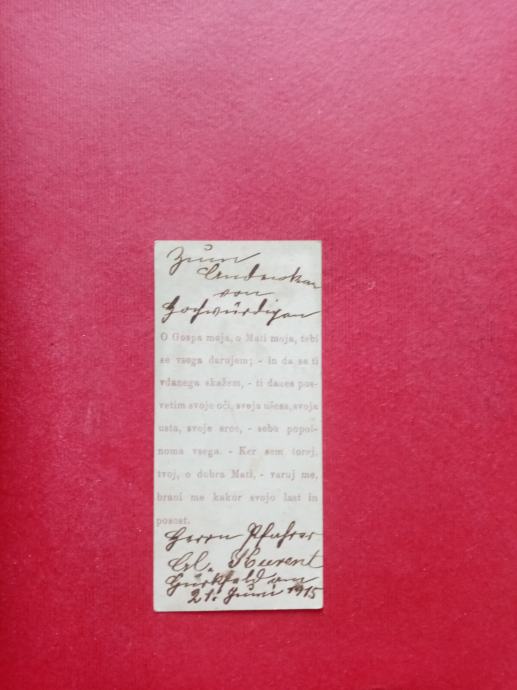 Zum
Andenken
von
Hochwürdigen
O Gospa moja, o Mati moja, tebi
se vsega darujem; - in da se ti
vdanega skažem, - ti danes pos-
vetim svoje oči, svoja ušesa, svoja
usta, svoje srce, - sebe popol-
noma vsega. - Ker sem torej,
tvoj, o dobra Mati, - varuj me,
brani me kakor svojo last in
posest.
Herrn Pfahrer
Kurent
Gurkfeld am
21. Juni 1915